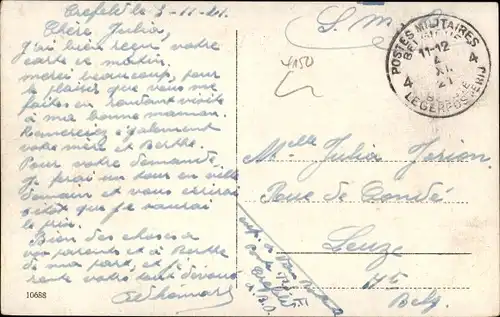 Crefeld le 3-11-21.
Chère Julia,
J'ai bien reçu votre
carte ce matin,
merci beaucoup, pour
le plaisir que vous me
faites en rendant visite
à ma bonne maman.
Remerciez également
votre mère et Berthe.
Pour votre demande,
je ferai un tour en ville
demain et vous écrirai
sitôt que je saurai le
prix.
Bien des choses à
vos parents et à Berthe
de ma part, et je
reste votre tout dévoué
10688
S. M.
4150
POSTES MILITAIRES
BELGIQUE
11-12
4 4
XI
21
LEGERPOSTERIJ
Melle Julia
Rue de Condé
Leuze
175
Belg.